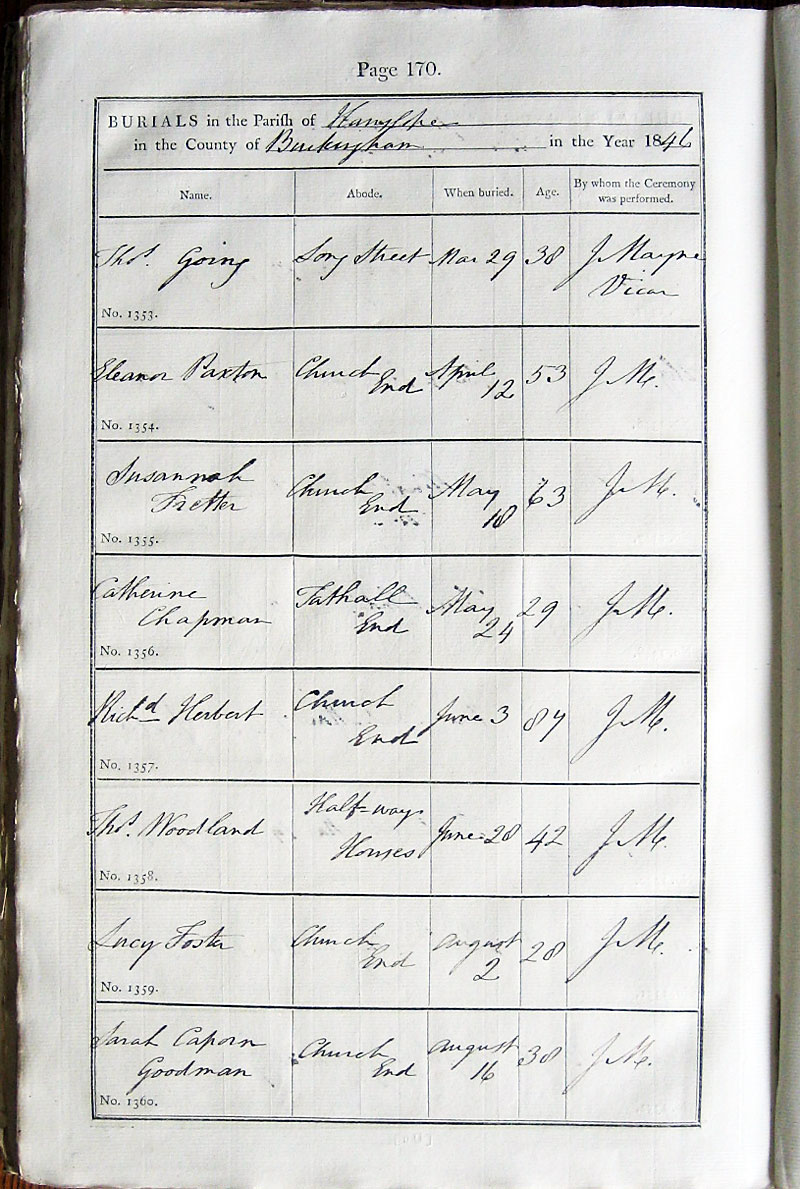 Page 170.
BURIALS in the Parish of Hanslope
in the County of Buckingham in the Year 1846
Name. Abode. When buried. Age. By whom the Ceremony was performed.
Thos. Going Long Street Mar 29 38 J Mayne
Vicar
No. 1353.
Eleanor Paxton Church End April 12 53 J M.
No. 1354.
Susannah
Fretter Church End May 18 63 J M.
No. 1355.
Catherine
Chapman Tathall End May 24 29 J M.
No. 1356.
Richd Herbert Church End June 3 84 J M.
No. 1357.
Thos. Woodland Half-way Houses June 28 42 J M.
No. 1358.
Lucy Foster Church End August 2 28 J M.
No. 1359.
Sarah Caporn
Goodman Church End August 16 38 J M.
No. 1360.